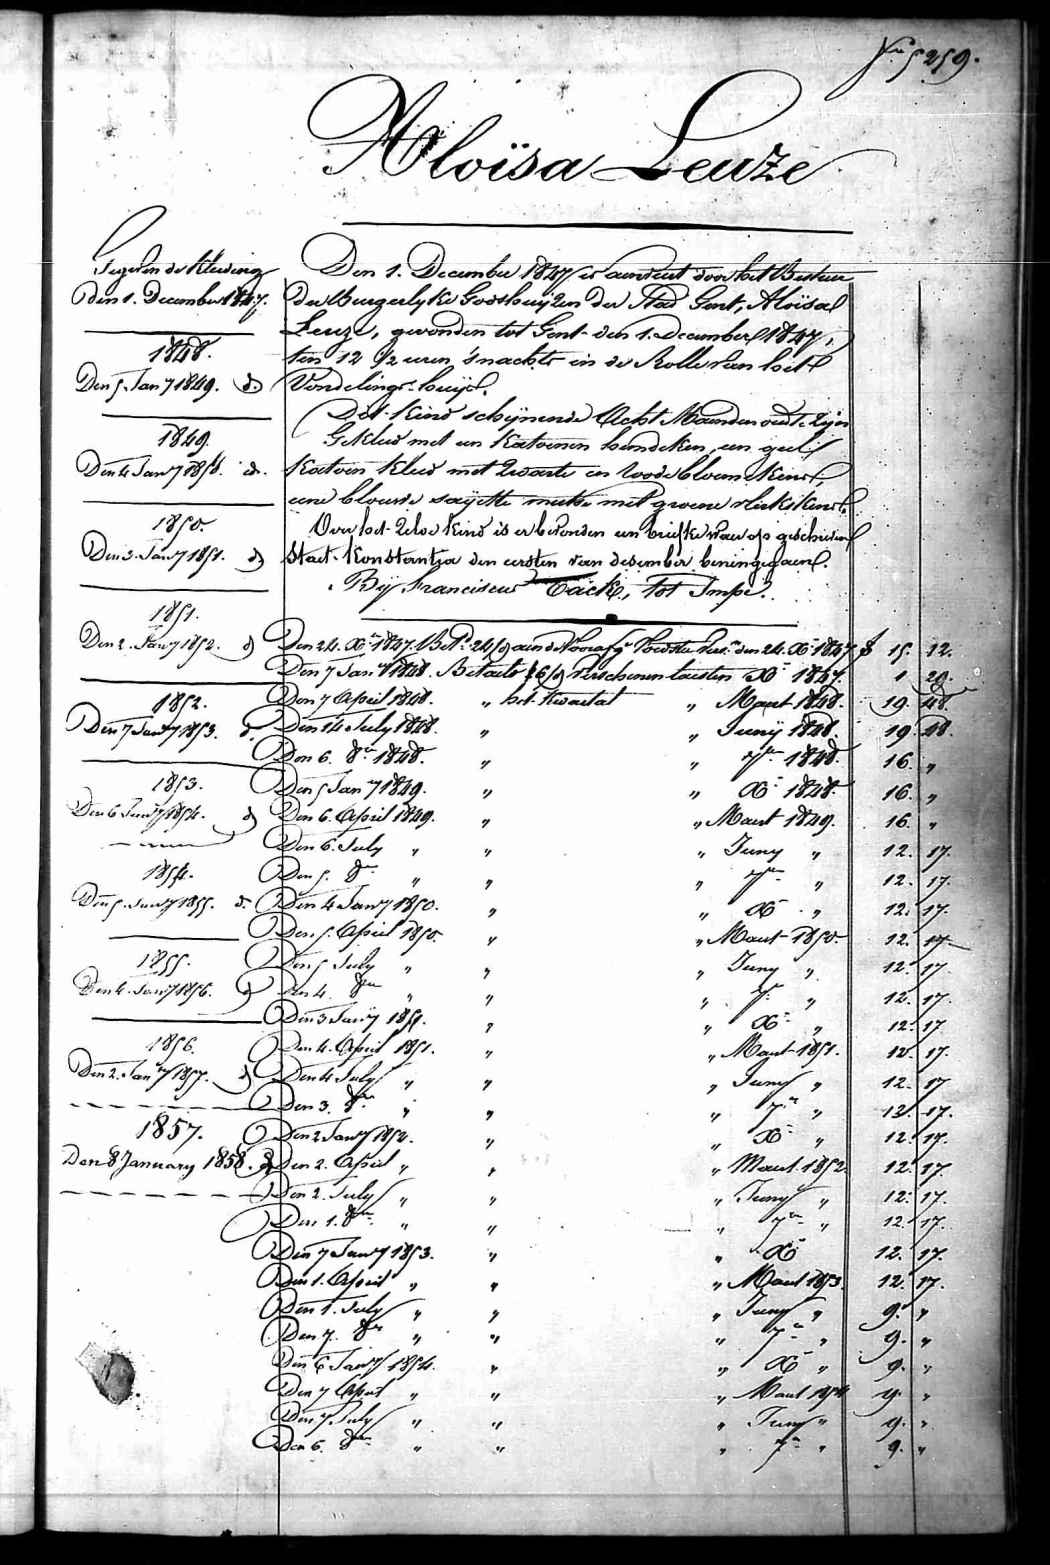 5259.
Aloïsa Leuze
Gegeven de Kleeding
den 1. December 1847.
1848.
Den 5 Jany 1849. do
1849.
Den 4 Jany 1850. do
1850.
Den 3. Jany 1851. do
1851.
Den 2. Jany 1852. do
1852.
Den 7 Jany 1853. do
1853.
Den 6 Jany 1854. do
1854.
Den 5. Jany 1855. do
1855.
Den 4. Jany 1856. do
1856.
Den 2. Jany 1857. do
1857.
Den 8 January 1858. do
Den 1. December 1847 is aenveird door het Bestuer
der Burgerlyke Godshuyzen der Stad Gent, Aloïsa
Leuze, gevonden tot Gent den 1. December 1847,
ten 12 1/2 uren 's nachts in de Rolle van het
Vondelings-huys.
Dit kind schynende Acht Maenden oud te zyn
Gekleed met een katoenen hemdeken, een geel
katoen kleed met zwarte en roode bloemekens,
eene blauwe sayette mutse met groene strikskens.
Over het zelve kind is er bevonden een briefke waer op geschreven
staet Konstantia den eersten van desember beningegaen.
By Franciscus Tack, tot Impe.
Den 24. Xr 1847. Bet. 24 den 24. Xr 1847 f 15. 12.
Den 7 Jany 1848. Betaelt verschenen laesten Xr 1847. 1. 29.
Den 7 April 1848. " het kwartael " Maert 1848. 19. 48.
Den 14 July 1848. " " Juny 1848. 19. 48.
Den 6. 8er 1848. " " 7er 1848. 16. "
Den 5 Jany 1849. " " Xr 1848. 16. "
Den 6. April 1849. " " Maert 1849. 16. "
Den 6. July " " " Juny " 12. 17.
Den 5. 8er " " " 7er " 12. 17.
Den 4 Jany 1850. " " Xr " 12. 17.
Den 5. April 1850. " " Maert 1850. 12. 17.
Den 5 July " " " Juny " 12. 17.
Den 4. 8er " " " 7er " 12. 17.
Den 3 Jany 1851. " " Xr " 12. 17.
Den 4. April 1851. " " Maert 1851. 12. 17.
Den 4 July " " " Juny " 12. 17
Den 3. 8er " " " 7er " 12. 17.
Den 2 Jany 1852. " " Xr " 12. 17.
Den 2. April " " " Maert 1852. 12. 17.
Den 2. July " " " Juny " 12. 17.
Den 1. 8er " " " 7er " 12. 17.
Den 7 Jany 1853. " " Xr 12. 17.
Den 1. April " " " Maert 1853. 12. 17.
Den 1. July " " " Juny " 9. "
Den 7. 8er " " " 7er " 9. "
Den 6 Jany 1854. " " Xr " 9. "
Den 7 April " " " Maert 1854 9. "
Den 7 July " " " Juny " 9. "
Den 6. 8er " " " 7er " 9. "